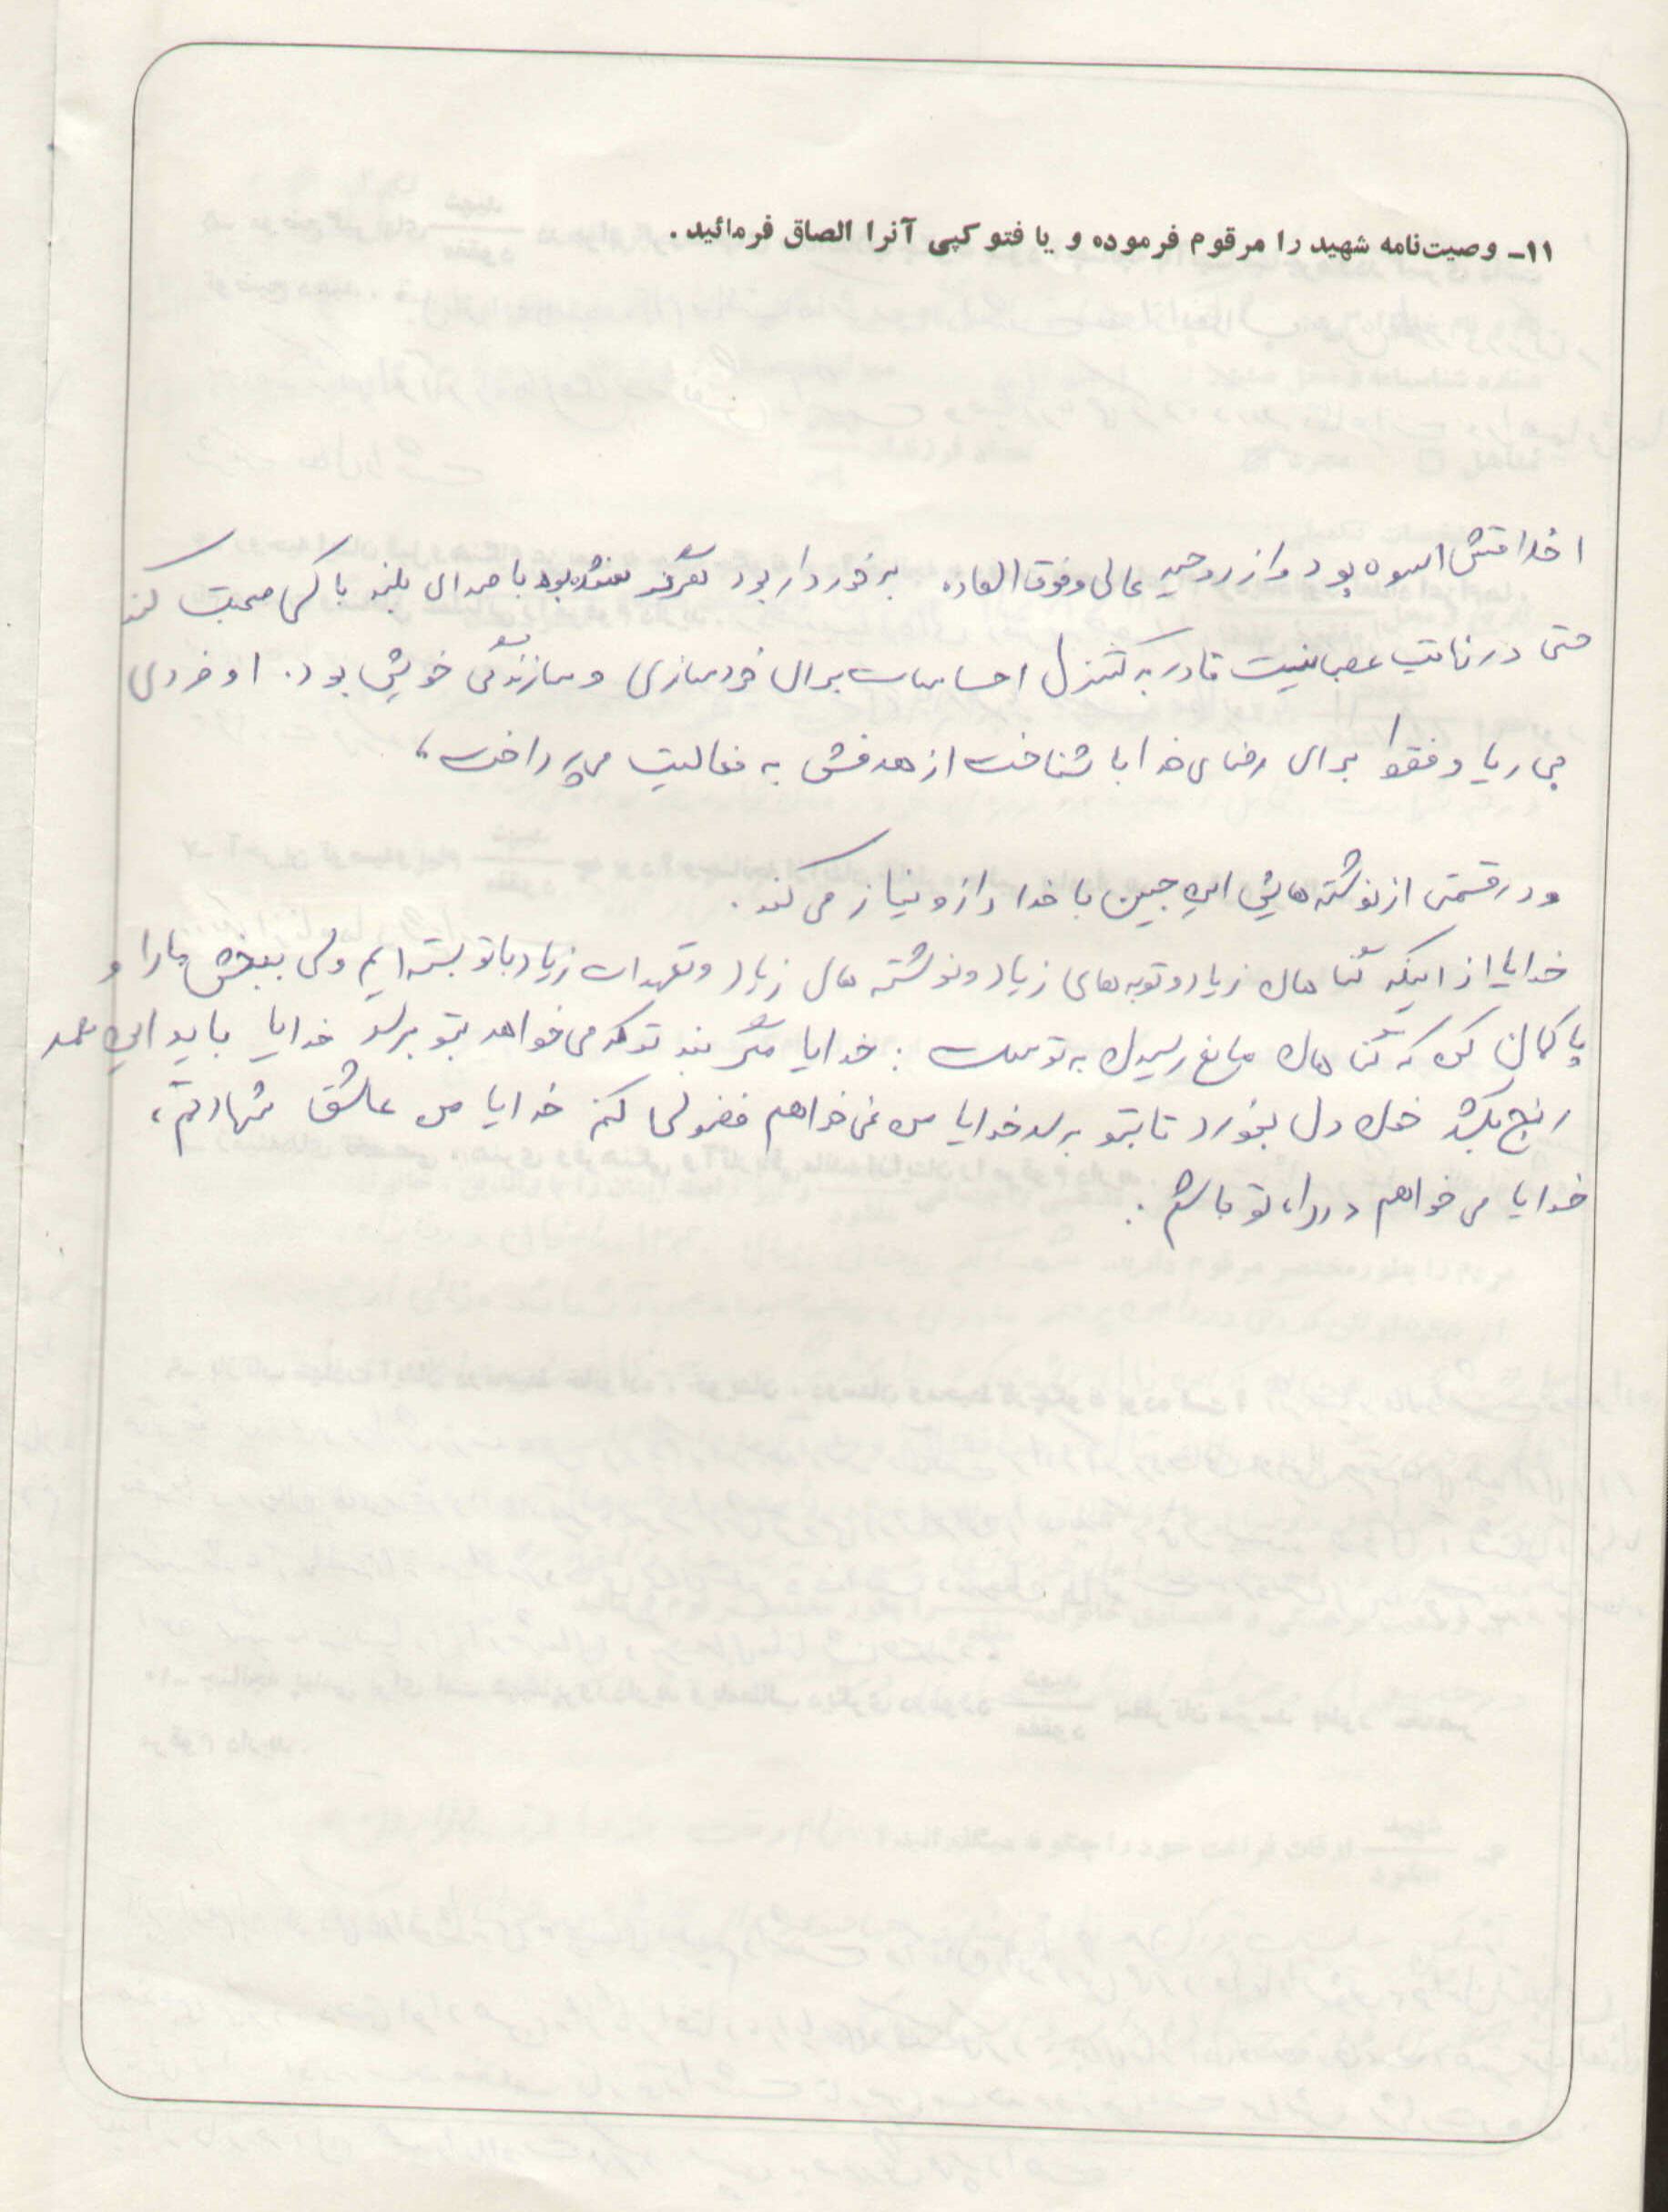 ۱۱- وصیت‌نامه شهید را مرقوم فرموده و یا فتوکپی آنرا الصاق فرمائید.
اخلاقش اسوه بود و از روحیه عالی و فوق العاده برخوردار بود هرگز نشده بود با صدای بلند با کسی صحبت کند
حتی در نهایت عصبانیت قادر به کنترل احساسات برای خودسازی و سازندگی خویش بود. او فردی
بی ریا و فقط برای رضای خدا با شناخت از هدفش به فعالیت می‌پرداخت،
و در قسمتی از نوشته هایش این چنین با خدا راز و نیاز می کند.
خدایا از اینکه گناهان زیاد و توبه های زیاد و نوشته های زیاد و تعهدات زیاد با تو بسته ایم ولی ببخش ما را و
پاکمان کن که گناهان مانع رسیدن به توست. خدایا مگر بنده تو که می خواهد بتو برسد خدایا باید این همه
رنج بکشد خون دل بخورد تا بتو برسد خدایا من نمی خواهم فضولی کنم خدایا من عاشق شهادتم،
خدایا می خواهم در راه تو باشم.